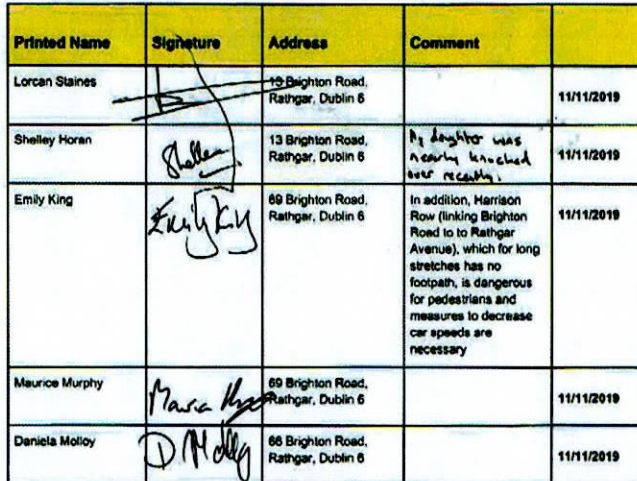 Printed Name Signature Address Comment
Lorcan Staines 13 Brighton Road,
Rathgar, Dublin 6 11/11/2019
Shelley Horan Shelley 13 Brighton Road,
Rathgar, Dublin 6 11/11/2019
My daughter was
nearly knocked
over recently.
Emily King Emily King 69 Brighton Road,
Rathgar, Dublin 6 11/11/2019
In addition, Harrison
Row (linking Brighton
Road to to Rathgar
Avenue), which for long
stretches has no
footpath, is dangerous
for pedestrians and
measures to decrease
car speeds are
necessary
Maurice Murphy 69 Brighton Road,
Rathgar, Dublin 6 11/11/2019
Daniela Molloy D Molloy 66 Brighton Road,
Rathgar, Dublin 6 11/11/2019